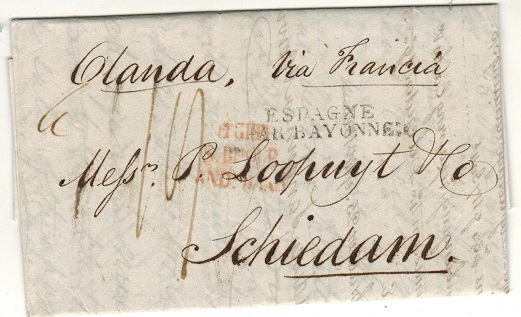 Olanda, Via Francia
ESPAGNE
PAR BAYONNE
Messrs. P. Loopuyt & Co
Schiedam.